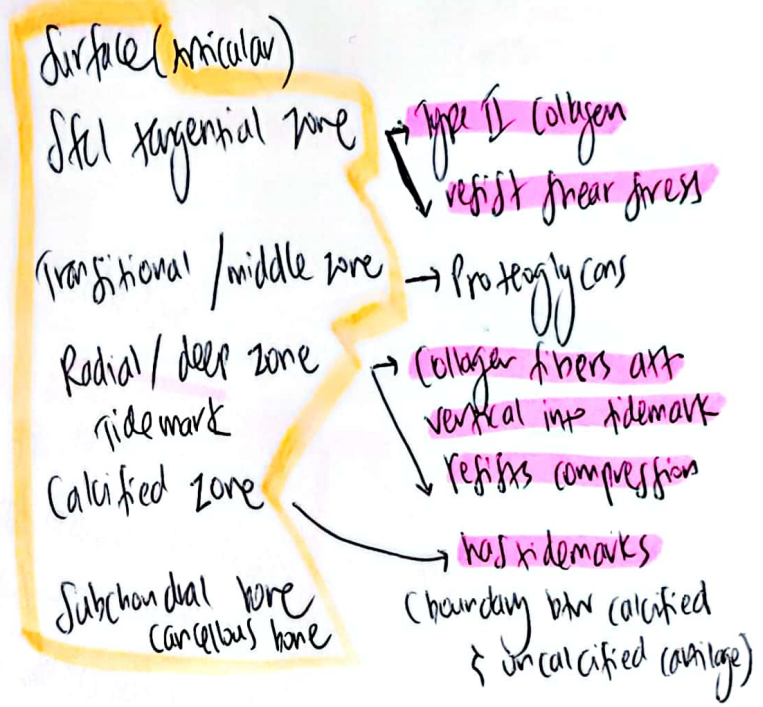 Surface (articular)
Sfcl tangential zone → Type II collagen
resist shear stress
Transitional / middle zone → Proteoglycans
Radial / deep zone → Collagen fibers att
vertical into tidemark
Tidemark
resists compression
Calcified zone → has tidemarks
(boundary btw calcified
& uncalcified cartilage)
Subchondral bone
cancellous bone